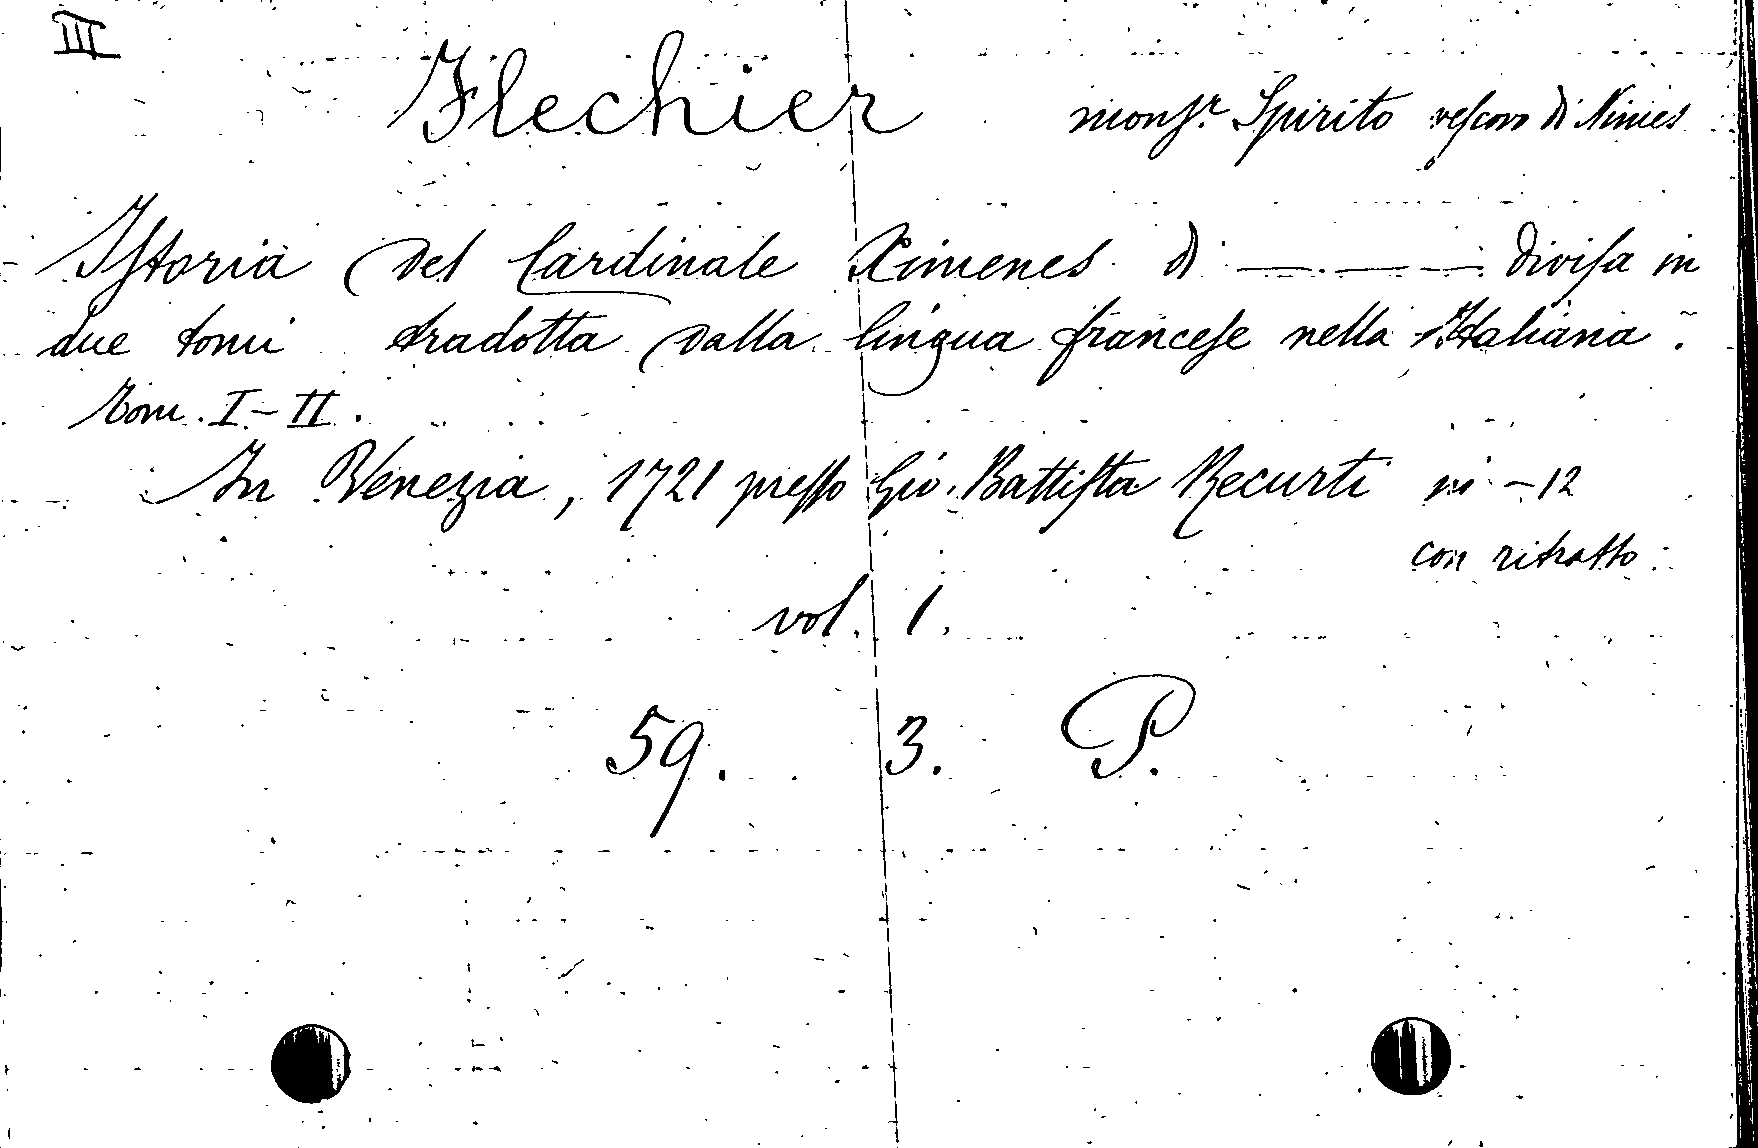 III
Flechier monsr. Spirito vescovo di Nimes
Istoria del Cardinale Ximenes di —.—— divisa in
due tomi tradotta dalla lingua francese nella Italiana.
Tom. I-II.
In Venezia, 1721 presso Gio. Battista Recurti in-12
con ritratto.
vol. 1.
59. 3. P.